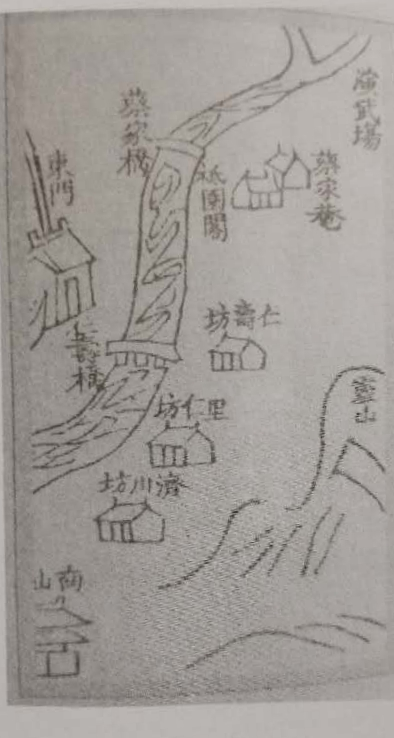 演武場
蔡家庵
祇園閣
蔡家橋
東門
仁壽坊
仁壽橋
靈山
里仁坊
濟川坊
南山